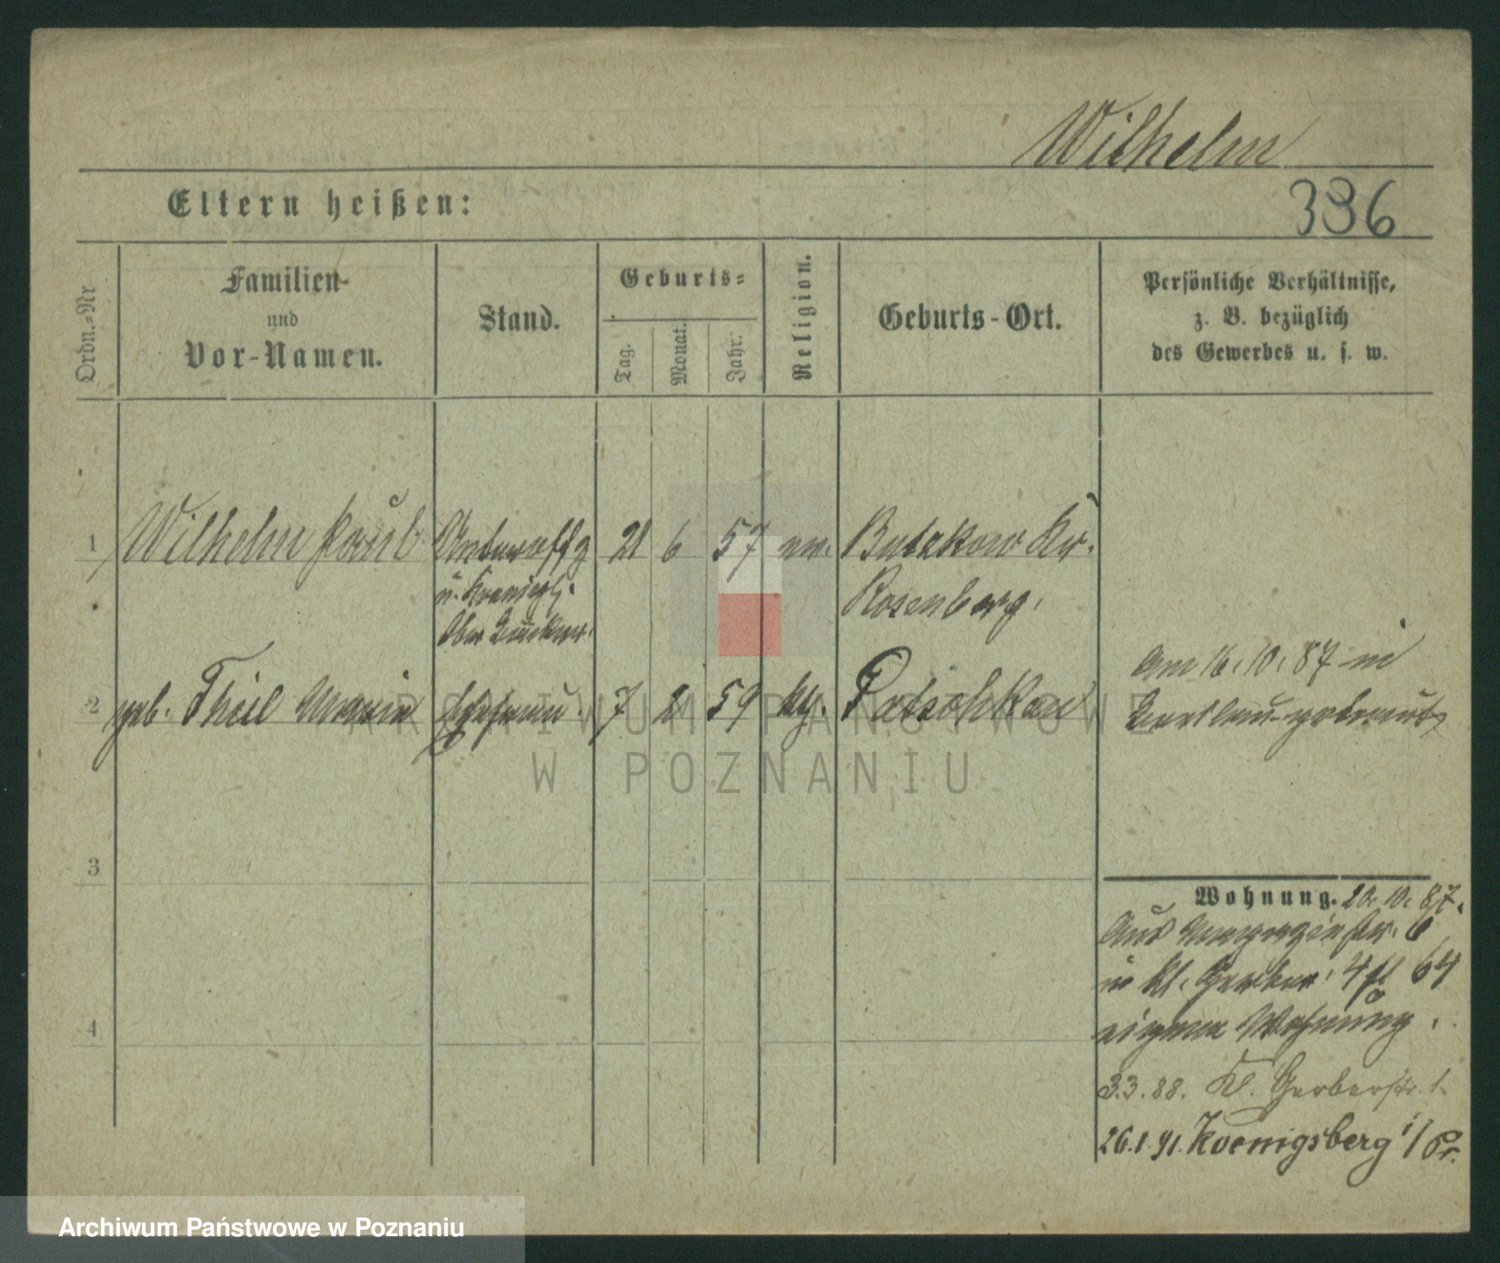 Wilhelm
336
Eltern heißen:
Ordn.-Nr
Familien-
und
Vor-Namen.
Stand.
Geburts-
Tag.
Monat.
Jahr.
Religion.
Geburts-Ort.
Persönliche Verhältnisse,
z. B. bezüglich
des Gewerbes u. s. w.
1 Wilhelm Paul 21 6 57 ev. Kr.
Rosenberg.
2 geb. Theil Maria Ehefrau 7 2 59 kth. Patschkau
Am 16. 10. 87 in
Breslau getraut
3
4
Wohnung. 20. 10. 87.
Aus 6
in kl. Gerber. 4 64
eigene Wohnung.
3.3.88. Kl. Gerberstr. 1.
26.1.91. Koenigsberg i/Pr.
ARCHIWUM PAŃSTWOWE
W POZNANIU
Archiwum Państwowe w Poznaniu